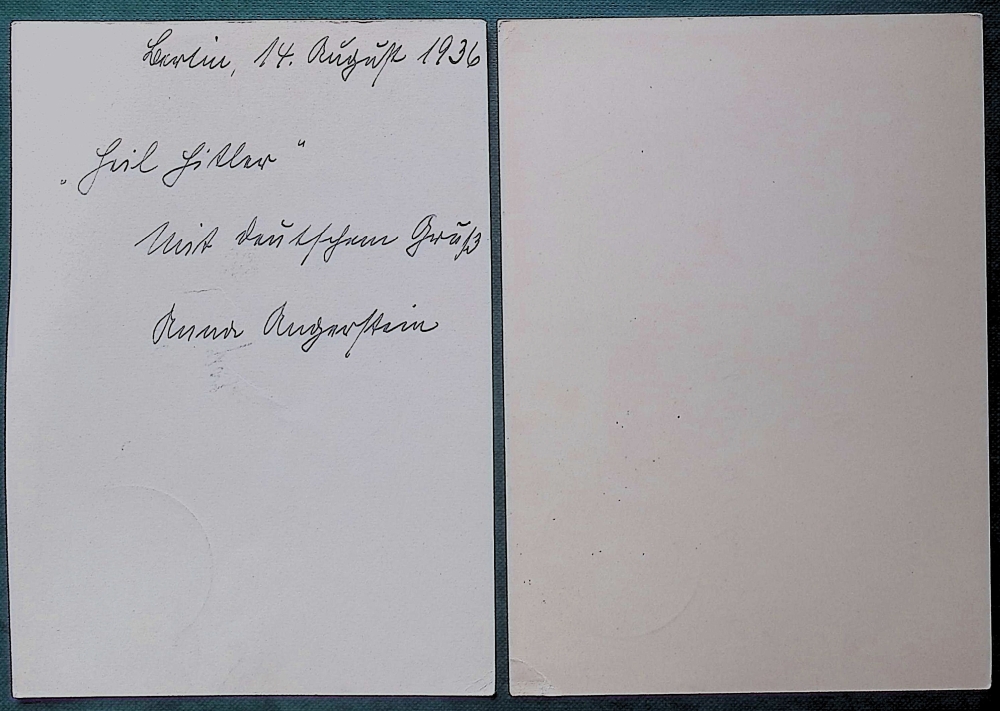 Berlin, 14. August 1936
„Heil Hitler"
Mit deutschem Gruß
Anna Angerstein